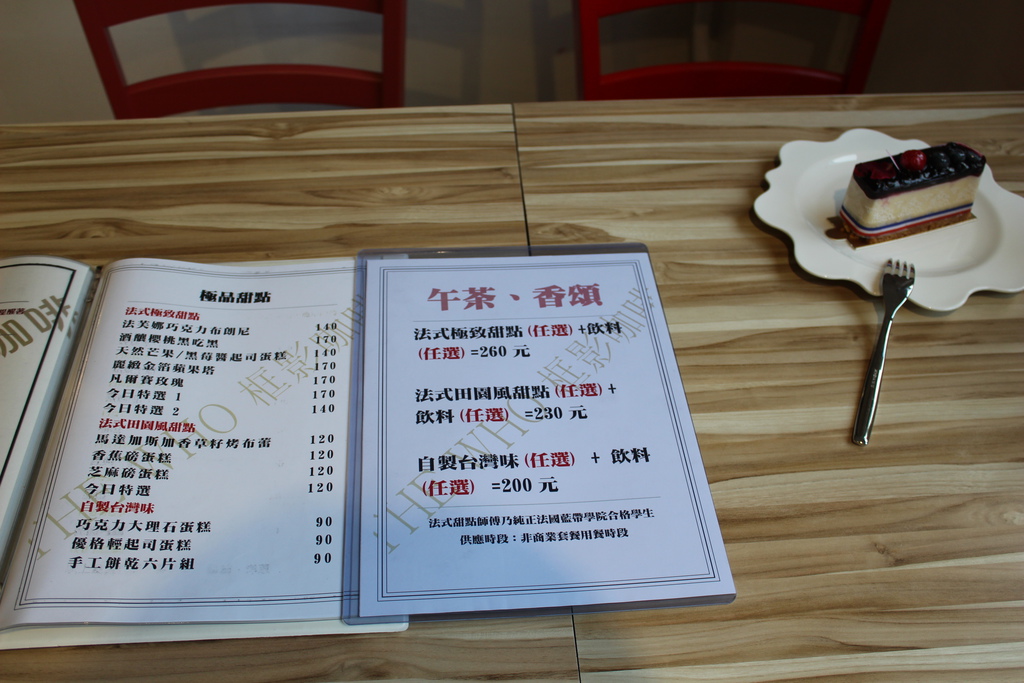 咖啡
極品甜點
法式極致甜點
法芙娜巧克力布朗尼 140
酒釀櫻桃黑吃黑 170
天然芒果/黑莓醬起司蛋糕 140
麗緻金箔蘋果塔 170
凡爾賽玫瑰 170
今日特選 1 170
今日特選 2 140
法式田園風甜點
馬達加斯加香草籽烤布蕾 120
香蕉磅蛋糕 120
芝麻磅蛋糕 120
今日特選 120
自製台灣味
巧克力大理石蛋糕 90
優格輕起司蛋糕 90
手工餅乾六片組 90
THEWHO 框影咖啡
午茶、香頌
法式極致甜點(任選)+飲料
(任選)=260 元
法式田園風甜點(任選)+
飲料(任選) =230 元
自製台灣味(任選) + 飲料
(任選) =200 元
法式甜點師傅乃純正法國藍帶學院合格學生
供應時段：非商業套餐用餐時段
THEWHO 框影咖啡